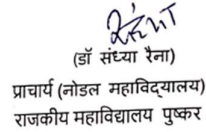 (डॉ संध्या रैना)
प्राचार्य (नोडल महाविद्यालय)
राजकीय महाविद्यालय पुष्कर